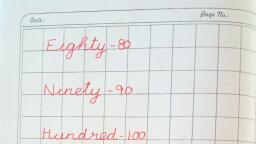 Date: Page No.:
Eighty-80
Ninety-90
Hundred-100